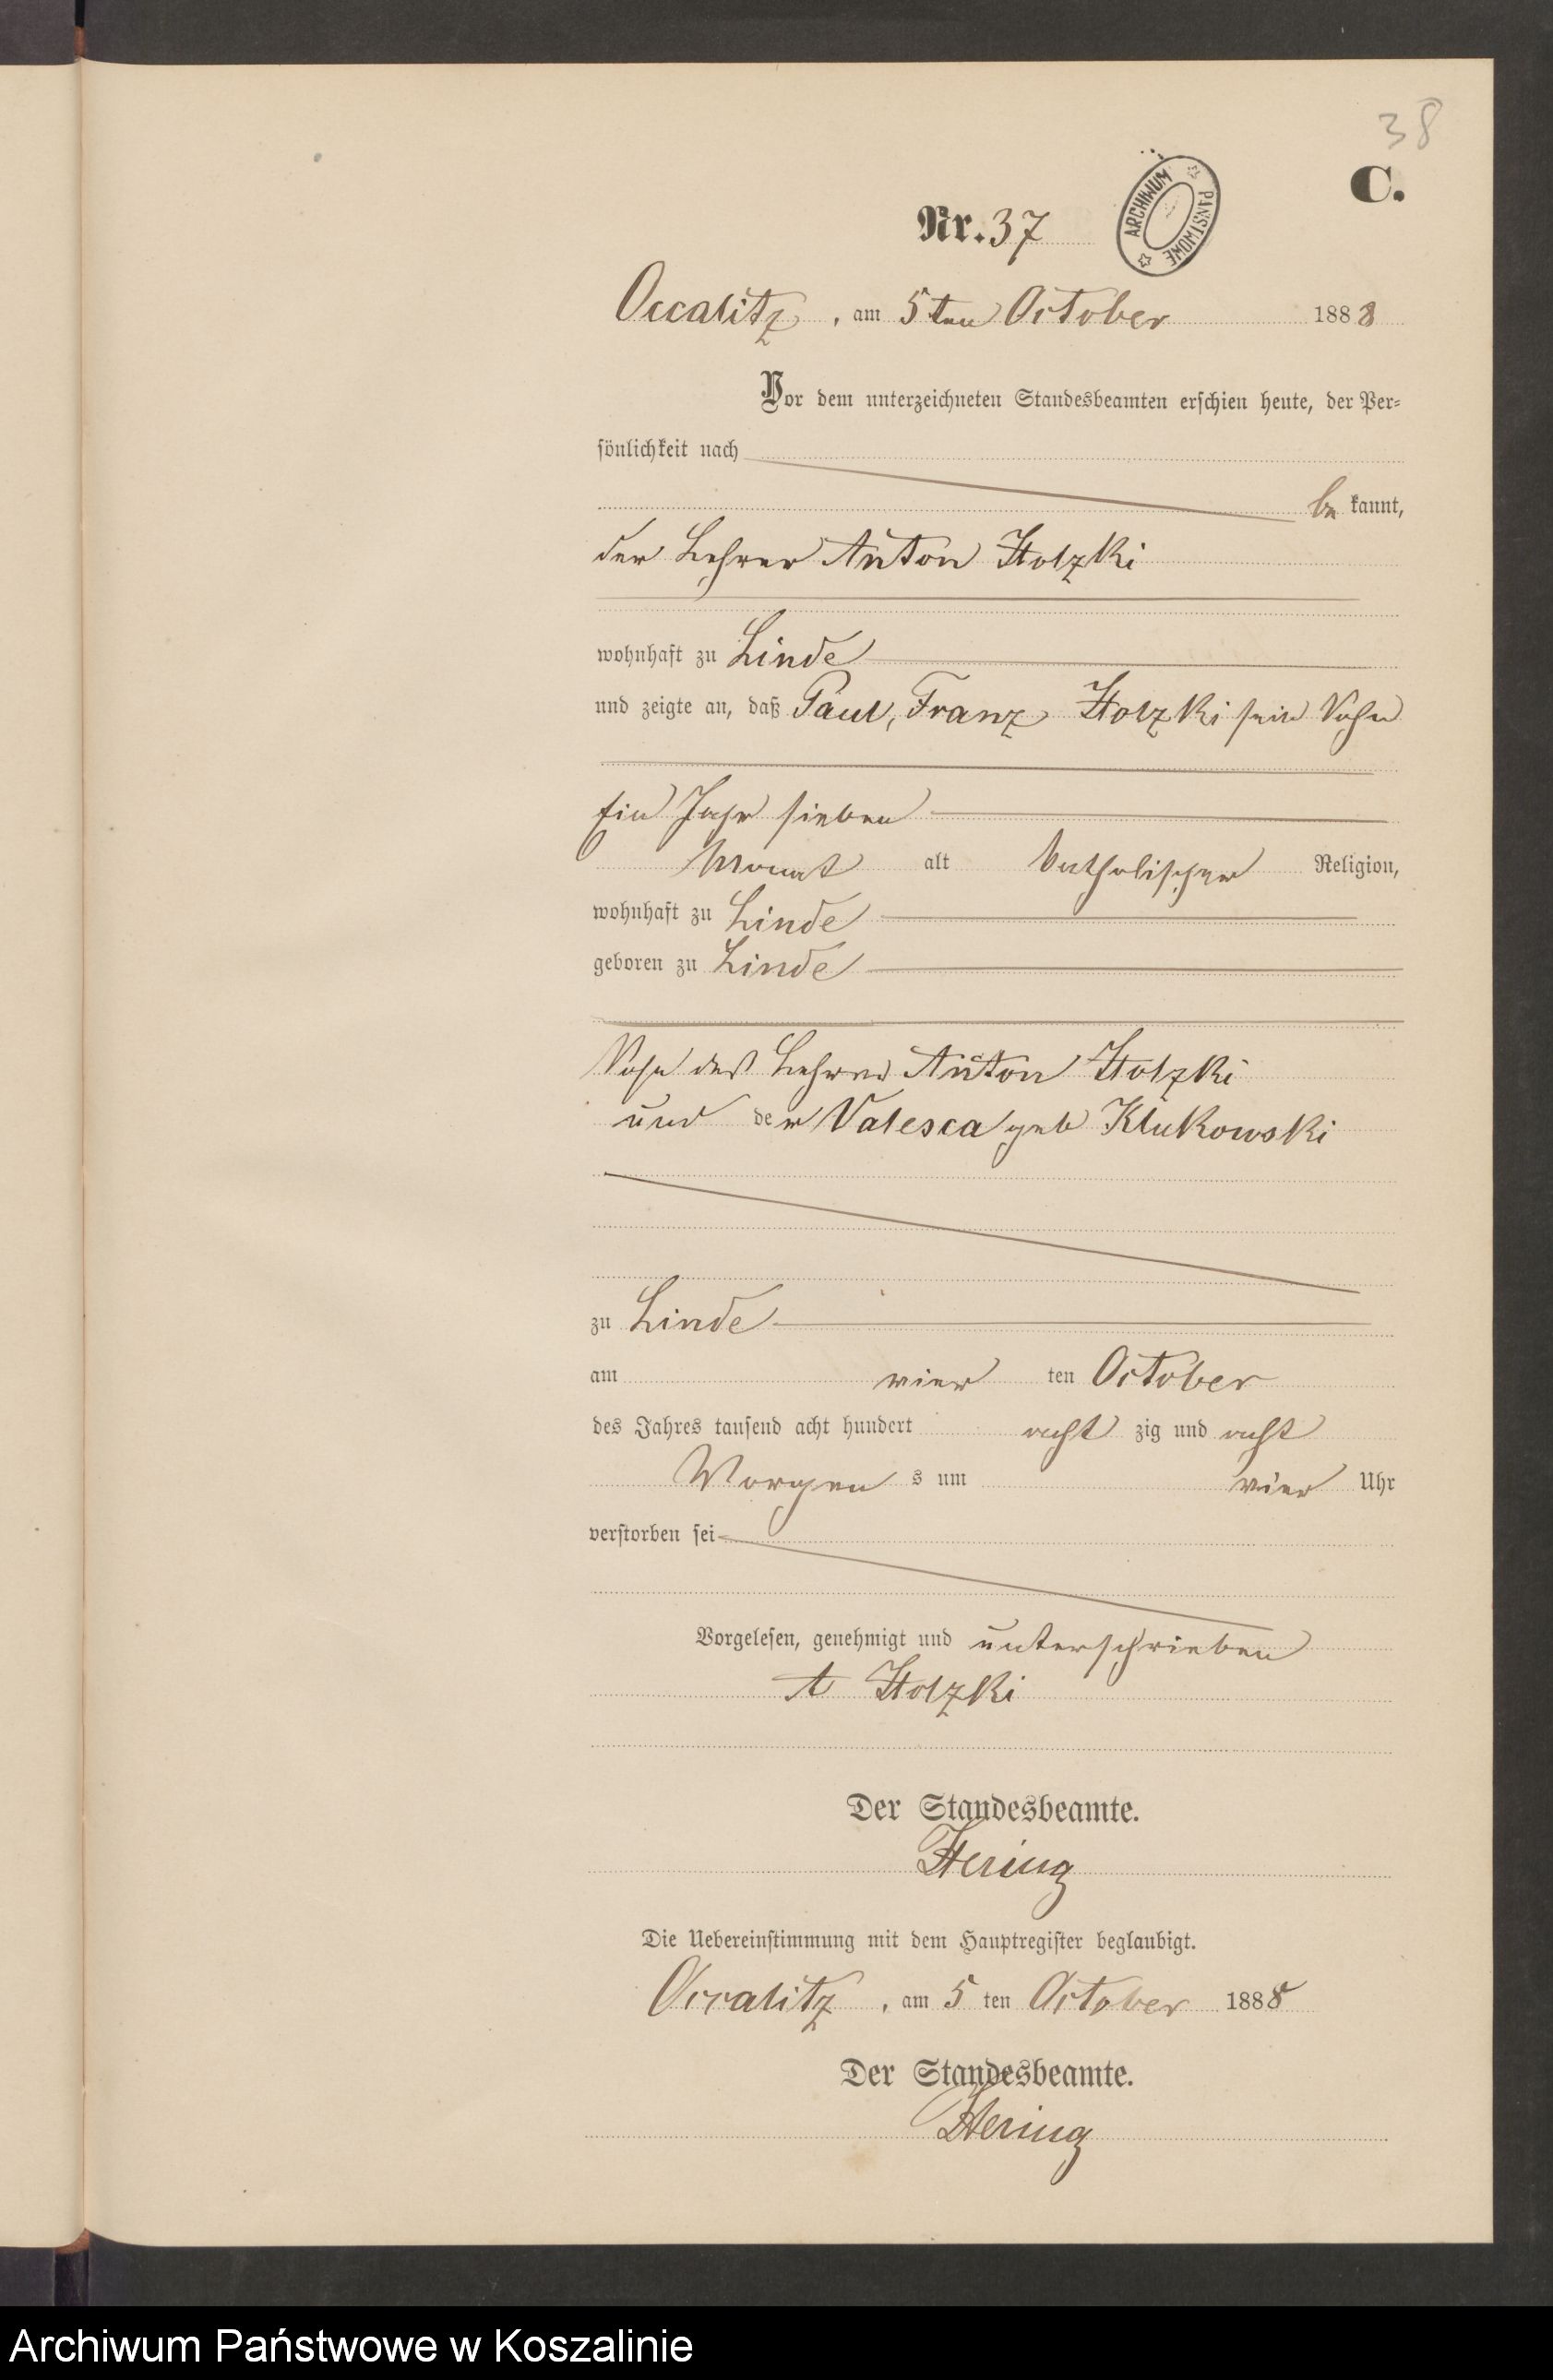 38
C.
ARCHIWUM PAŃSTWOWE
Nr. 37
Occalitz, am 5ten October 1888
Vor dem unterzeichneten Standesbeamten erschien heute, der Per-
sönlichkeit nach
be kannt,
der Lehrer Anton Holzki
wohnhaft zu Linde
und zeigte an, daß Paul, Franz Holzki sein Sohn
Ein Jahr sieben
Monat alt katholischer Religion,
wohnhaft zu Linde
geboren zu Linde
Sohn des Lehrers Anton Holzki
und der Valesca geb Klukowski
zu Linde
am vier ten October
des Jahres tausend acht hundert acht zig und acht
Morgen s um vier Uhr
verstorben sei
Vorgelesen, genehmigt und unterschrieben
A Holzki
Der Standesbeamte.
Hering
Die Uebereinstimmung mit dem Hauptregister beglaubigt.
Occalitz, am 5 ten October 1888
Der Standesbeamte.
Hering
Archiwum Państwowe w Koszalinie